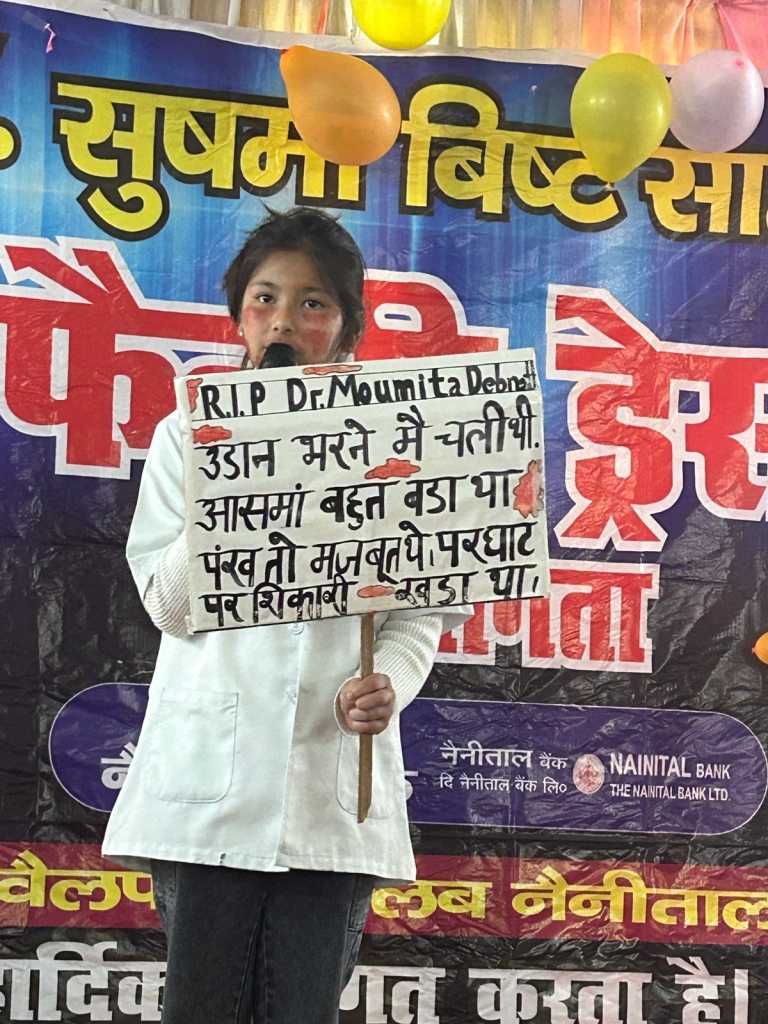 सुषमा बिष्ट
R.I.P Dr. Moumita
उडान भरने मै चली थी.
आसमां बहुत बडा था
पंख तो मजबूत थे। पर घाट
पर शिकारी खडा था।
नैनीताल बैंक
दि नैनीताल बैंक लि०
NAINITAL BANK
THE NAINITAL BANK LTD.
नैनीताल
करता है।